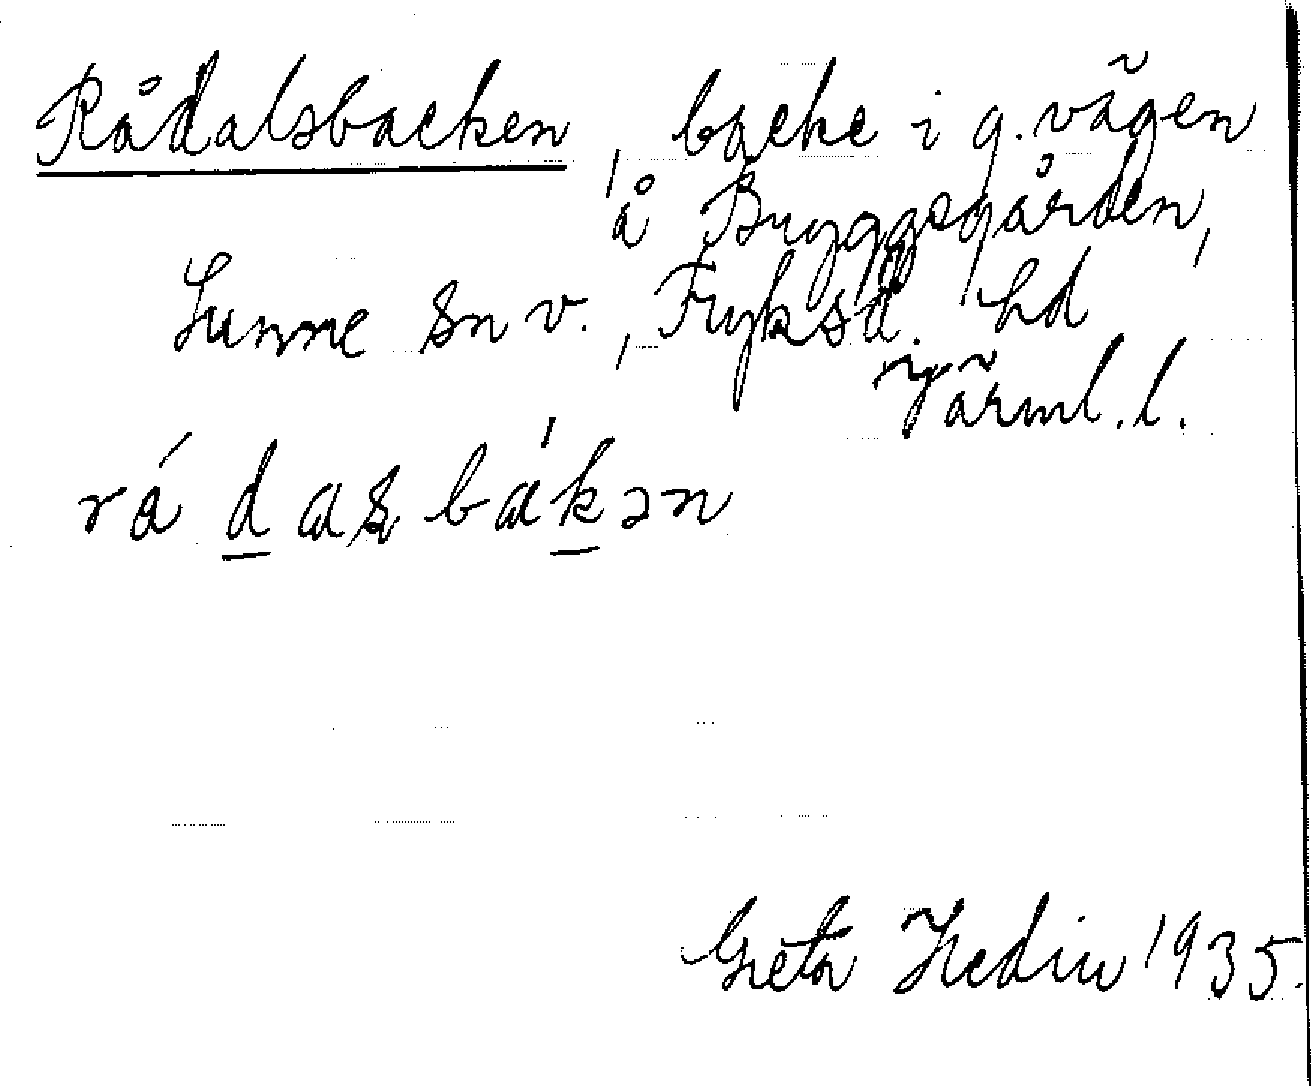 Rådalsbacken, backe i g. vägen
å Bryggsgården,
Sunne sn v., Fryksd. hd
Värml. l.
rá dasbákən
Greta Hedin 1935.